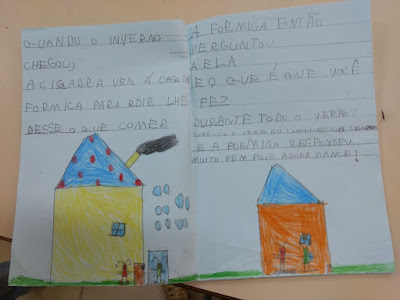 QUANDO O INVERNO
CHEGOU,
A CIGARRA VEIO Á CASA DA
FORMIGA PARA PDIR LHE
DESSE O QUE COMER
A FORMIGA ENTÃO
PERGUNTOU
A ELA
E O QUE É QUE VOCÊ
FEZ
DURANTE TODO O VERÃO?
DURANTE O VERÃO EU
E A FORMIGA RESPONDEU
MUITO BEM POIS AGORA DANCE!